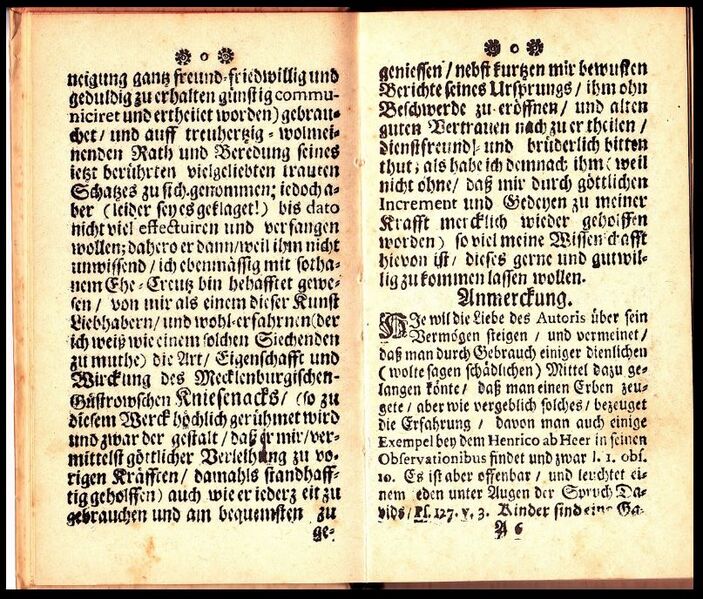 neigung gantz freund-friedwillig und
geduldig zu erhalten günstig commu-
niciret und ertheilet worden) gebrau-
chet / und auff treuhertzig - wolmei-
nenden Rath und Beredung seines
ietzt berührten vielgeliebten trauten
Schatzes zu sich genommen; iedoch a-
ber (leider sey es geklaget!) bis dato
nicht viel effectuiren und verfangen
wollen; dahero er dann / weil ihm nicht
unwissend / ich ebenmässig mit sotha-
nem Ehe-Creutz bin behafftet gewe-
sen / von mir als einem dieser Kunst
Liebhabern / und wohl-erfahrnen (der
ich weiß wie einem solchen Siechenden
zu muthe) die Art / Eigenschafft und
Wirckung des Mecklenburgischen-
Güstrowschen Kniesenacks / (so zu
diesem Werck höchlich gerühmet wird
und zwar der gestalt / daß er mir / ver-
mittelst göttlicher Verleihung zu vo-
rigen Kräfften / damahls standhaff-
tig geholffen) auch wie er iederzeit zu
gebrauchen und am bequemsten zu
ge-
geniessen / nebst kurtzen mir bewusten
Berichte seines Ursprungs / ihm ohn
Beschwerde zu eröffnen / und alten
guten Vertrauen nach zu ertheilen /
dienstfreundl- und brüderlich bitten
thut; als habe ich demnach ihm (weil
nicht ohne / daß mir durch göttlichen
Increment und Gedeyen zu meiner
Krafft mercklich wieder geholffen
worden) so viel meine Wissenschafft
hievon ist / dieses gerne und gutwil-
lig zukommen lassen wollen.
Anmerckung.
HIe wil die Liebe des Autoris über sein
Vermögen steigen / und vermeinet /
daß man durch Gebrauch einiger dienlichen
(wolte sagen schädlichen) Mittel dazu ge-
langen könte / daß man einen Erben zeu-
gete / aber wie vergeblich solches / bezeuget
die Erfahrung / davon man auch einige
Exempel bey dem Henrico ab Heer in seinen
Observationibus findet und zwar l. 1. obs.
10. Es ist aber offenbar / und leuchtet ei-
nem ieden unter Augen der Spruch Da-
vids / Ps. 127. v. 3. Kinder sind eine Ga-
A 6